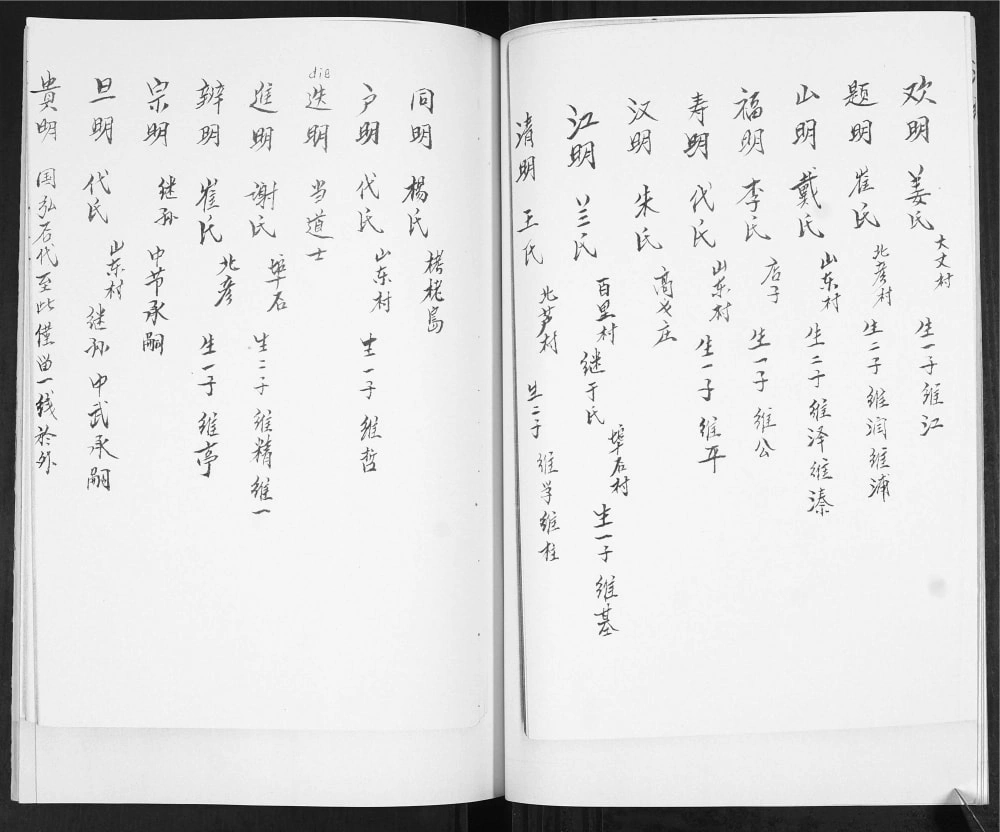 欢明 姜氏 大丈村 生一子 维江
题明 崔氏 北彦村 生二子 维润 维浦
山明 戴氏 山东村 生二子 维泽 维溱
福明 李氏 店子 生一子 维公
寿明 代氏 山东村 生一子 维平
汉明 朱氏 高戈庄
江明 兰氏 百里村 继于氏 埠石村 生一子 维基
清明 王氏 北芦村 生二子 维学 维柱
同明 杨氏 栲栳岛
户明 代氏 山东村 生一子 维哲
die
迭明 当道士
进明 谢氏 埠石 生二子 维精 维一
辨明 崔氏 北彦 生一子 维亭
宗明 继孙 中节承嗣
旦明 代氏 山东村 继孙 中武承嗣
貴明 国弘后代至此僅留一线於外